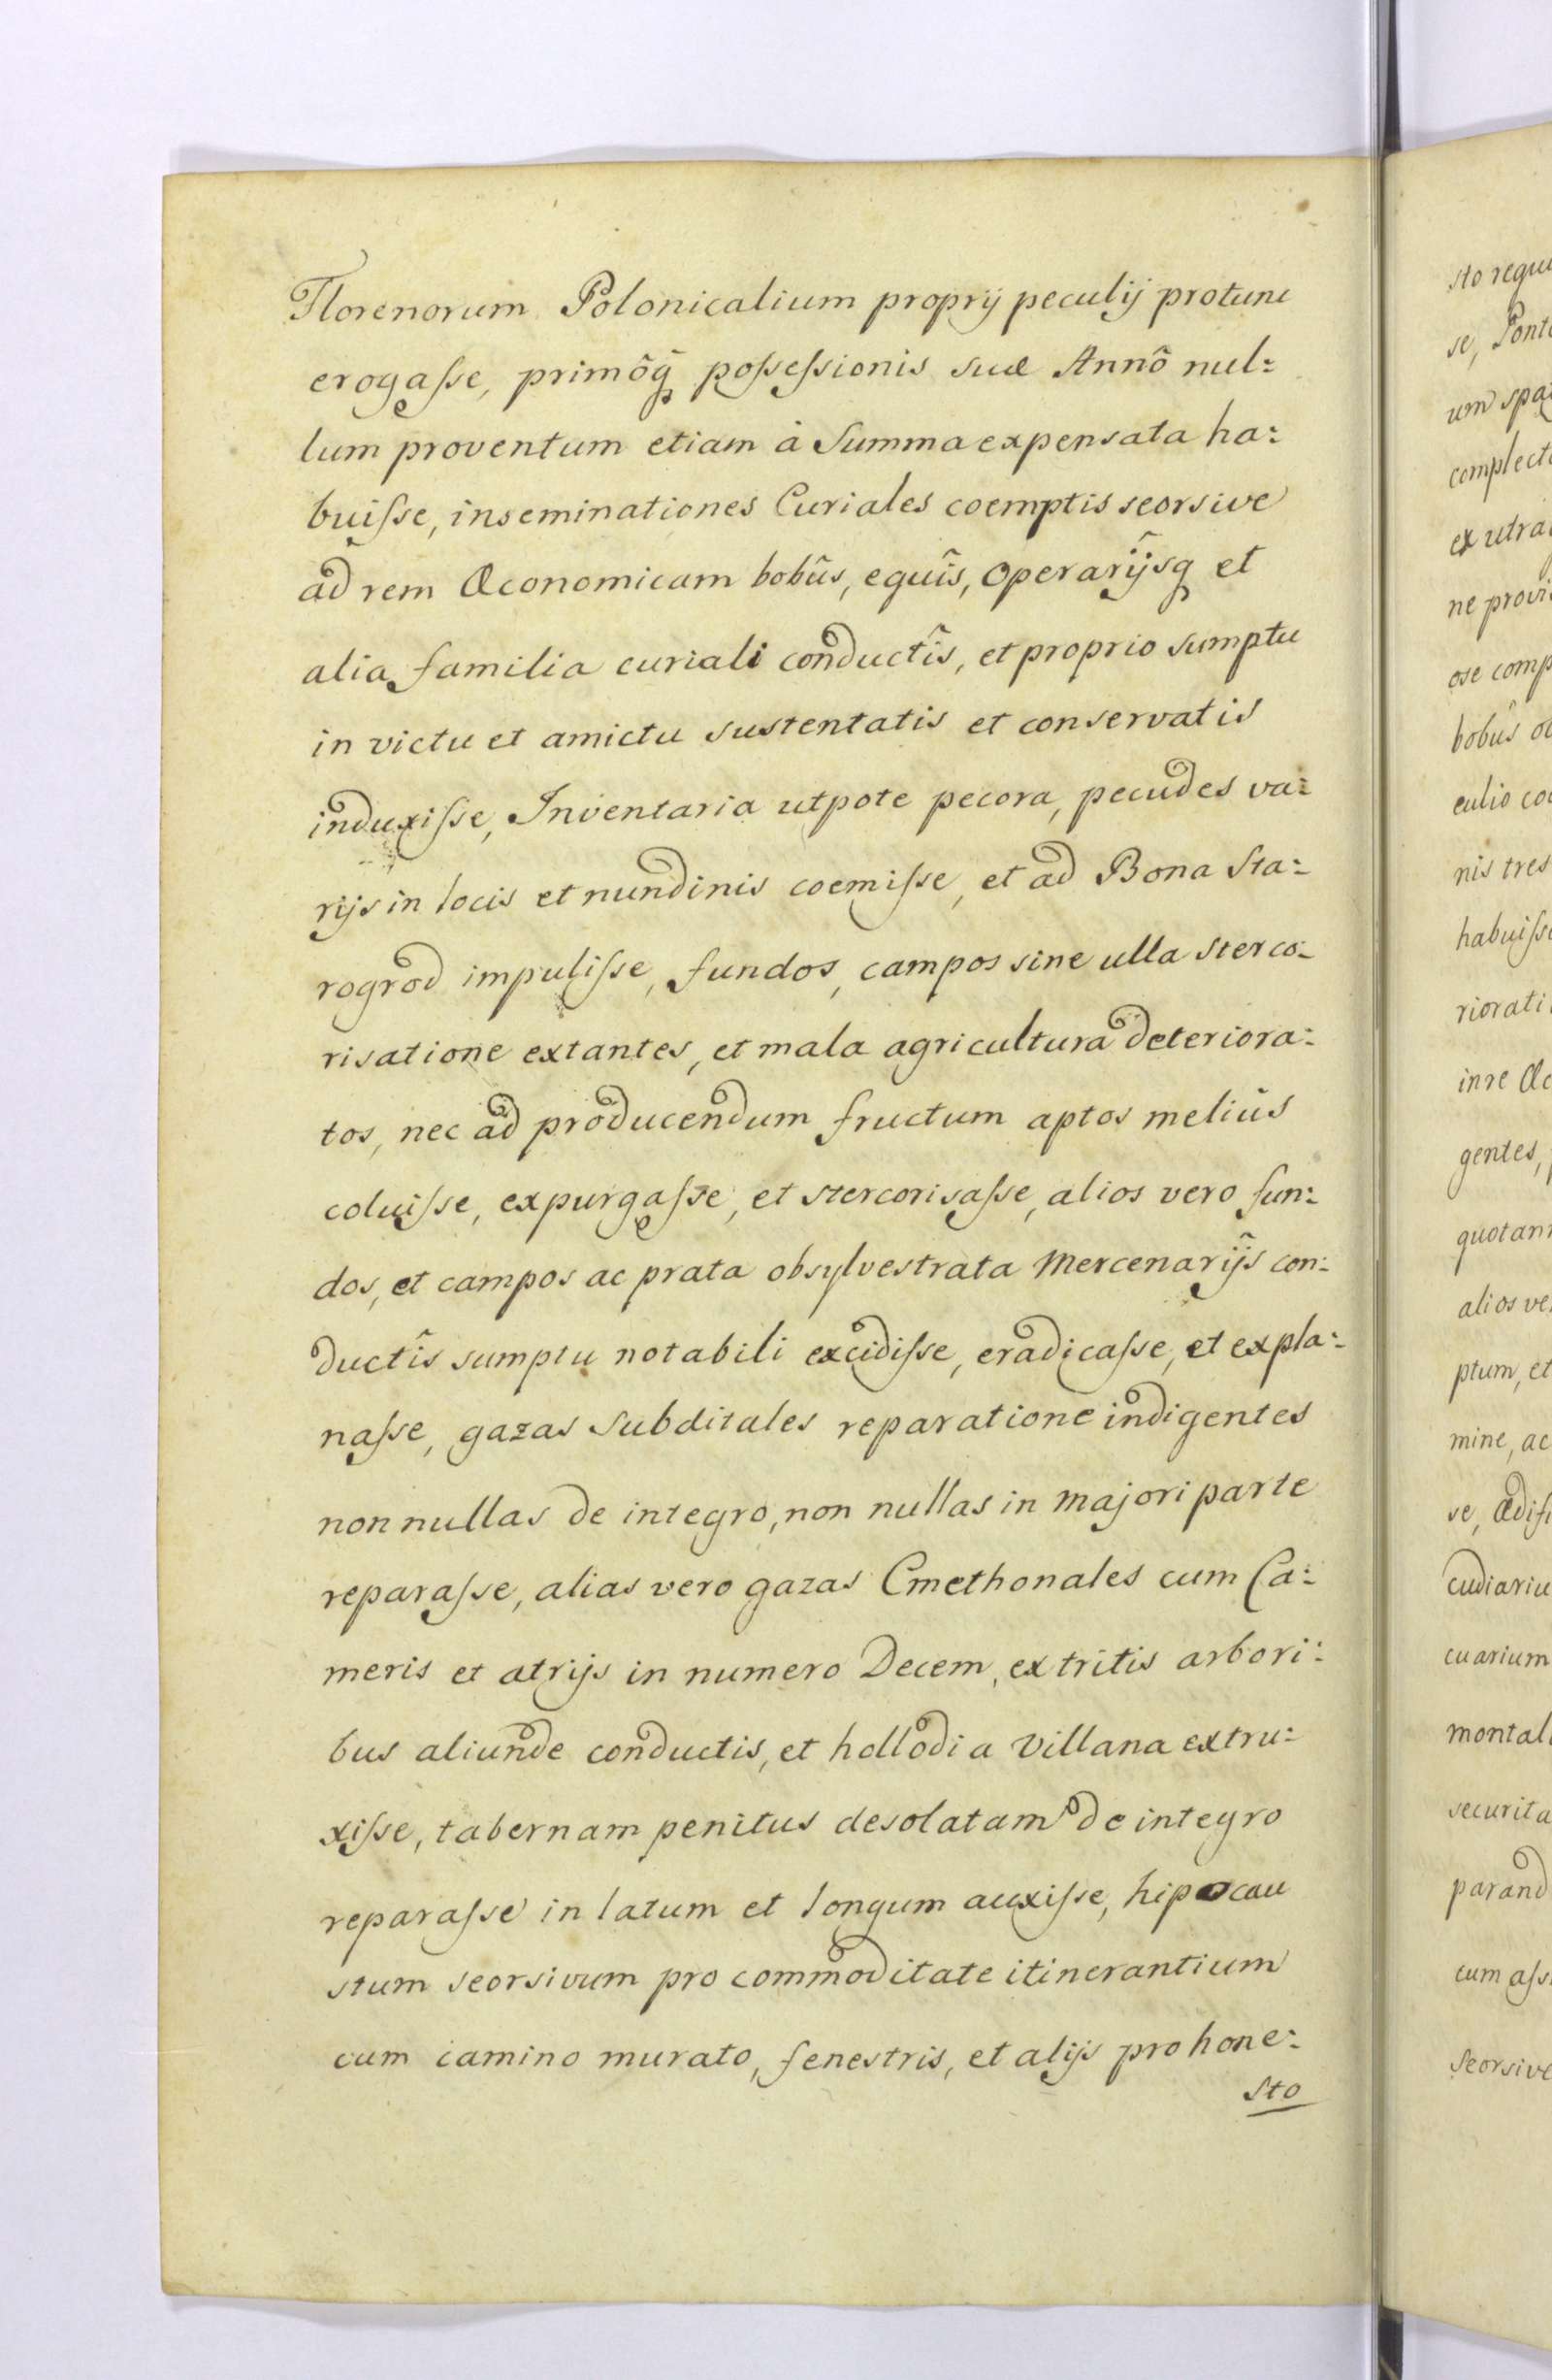 Florenorum Polonicalium proprij peculij protunc
erogaſse, primôq̃ poſseſsionis suæ Annô nul:
lum proventum etiam à Summa expensata ha:
buiſse, inseminationes Curiales coemptis seorsive
ad rem Œconomicam bobûs, equîs, operarîjsq et
alia familia curiali conductîs, et proprio sumptu
in victu et amictu sustentatis et conservatis
induxiſse, Inventaria utpote pecora, pecudes va:
rijs in locis et nundinis coemiſse, et ad Bona Sta:
rogrod impuliſse, fundos, campos sine ulla sterco:
risatione extantes, et mala agricultura deteriora:
tos, nec ad producendum fructum aptos meliûs
coluiſse, expurgaſse, et stercorisaſse, alios vero fun:
dos, et campos ac prata obsylvestrata Mercenarîjs con:
ductîs sumptu notabili excidiſse, eradicaſse, et expla:
naſse, gazas Subditales reparatione indigentes
non nullas de integro, non nullas in majori parte
reparaſse, alias vero gazas Cmethonales cum Ca:
meris et atrijs in numero Decem, ex tritis arbori:
bus aliunde conductis, et hollodia villana extru:
xiſse, tabernam penitus desolatam de integro
reparaſse in latum et longum auxiſse, hipocau
stum seorsivum pro commoditate itinerantium
cum camino murato, fenestris, et alijs pro hone:
sto
sto
se,
complect
ex utra
bobûs
nis tres
habuiſs
riorati
in re
gentes,
alios
ptum, et
mine, ac
se,
cuarium
montal
securita
parand
cum
Seorsive